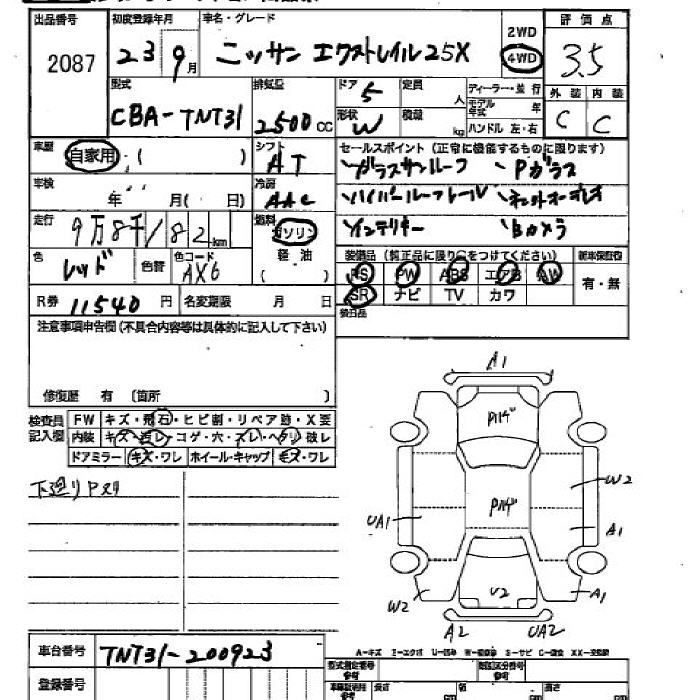 出品番号 初度登録年月 車名・グレード 2WD 評価点
2087 23 9月 ニッサン エクストレイル25X 4WD 3.5
型式 排気量 ドア 5 定員 人 ディーラー・並行 外装 内装
CBA-TNT31 2500cc 形状 W 積載 kg モデル年式 年 C C
ハンドル 左・右
車歴 自家用・( ) シフト AT セールスポイント (正常に機能するものに限ります)
ガラスサンルーフ Pガラス
車検 年 月( 日) 冷房 AAC ハイパールーフレール
走行 9万8千182km 燃料 ガソリン インテリキー Bカメラ
軽油 ( ) 装備品 (純正品に限り○をつけてください) 新車保証書
色 レッド 色替 色コード AX6 PS PW ABS エアB AW 有・無
R券 11540円 名変期限 月 日 SR ナビ TV カワ
注意事項申告欄(不具合内容等は具体的に記入して下さい) 後日品
修復歴 有 〔箇所 〕
検査員記入欄 FW キズ・飛石・ヒビ割・リペア跡・X要
内装 キズ・汚レ・コゲ・穴・スレ・ヘタリ 破レ
ドアミラー キズ・ワレ ホイール・キャップ キズ・ワレ
下廻りPスリ
A1
Pハゲ
Pハゲ
W2
UA1 A1
V2
W2 A1
A2 UA2
車台番号 TNT31-200923
A=キズ E=エクボ U=凹み W=補修跡 S=サビ C=腐食 XX=交換跡
登録番号 型式指定番号 参考 類別区分番号 参考
長さ 幅 高さ